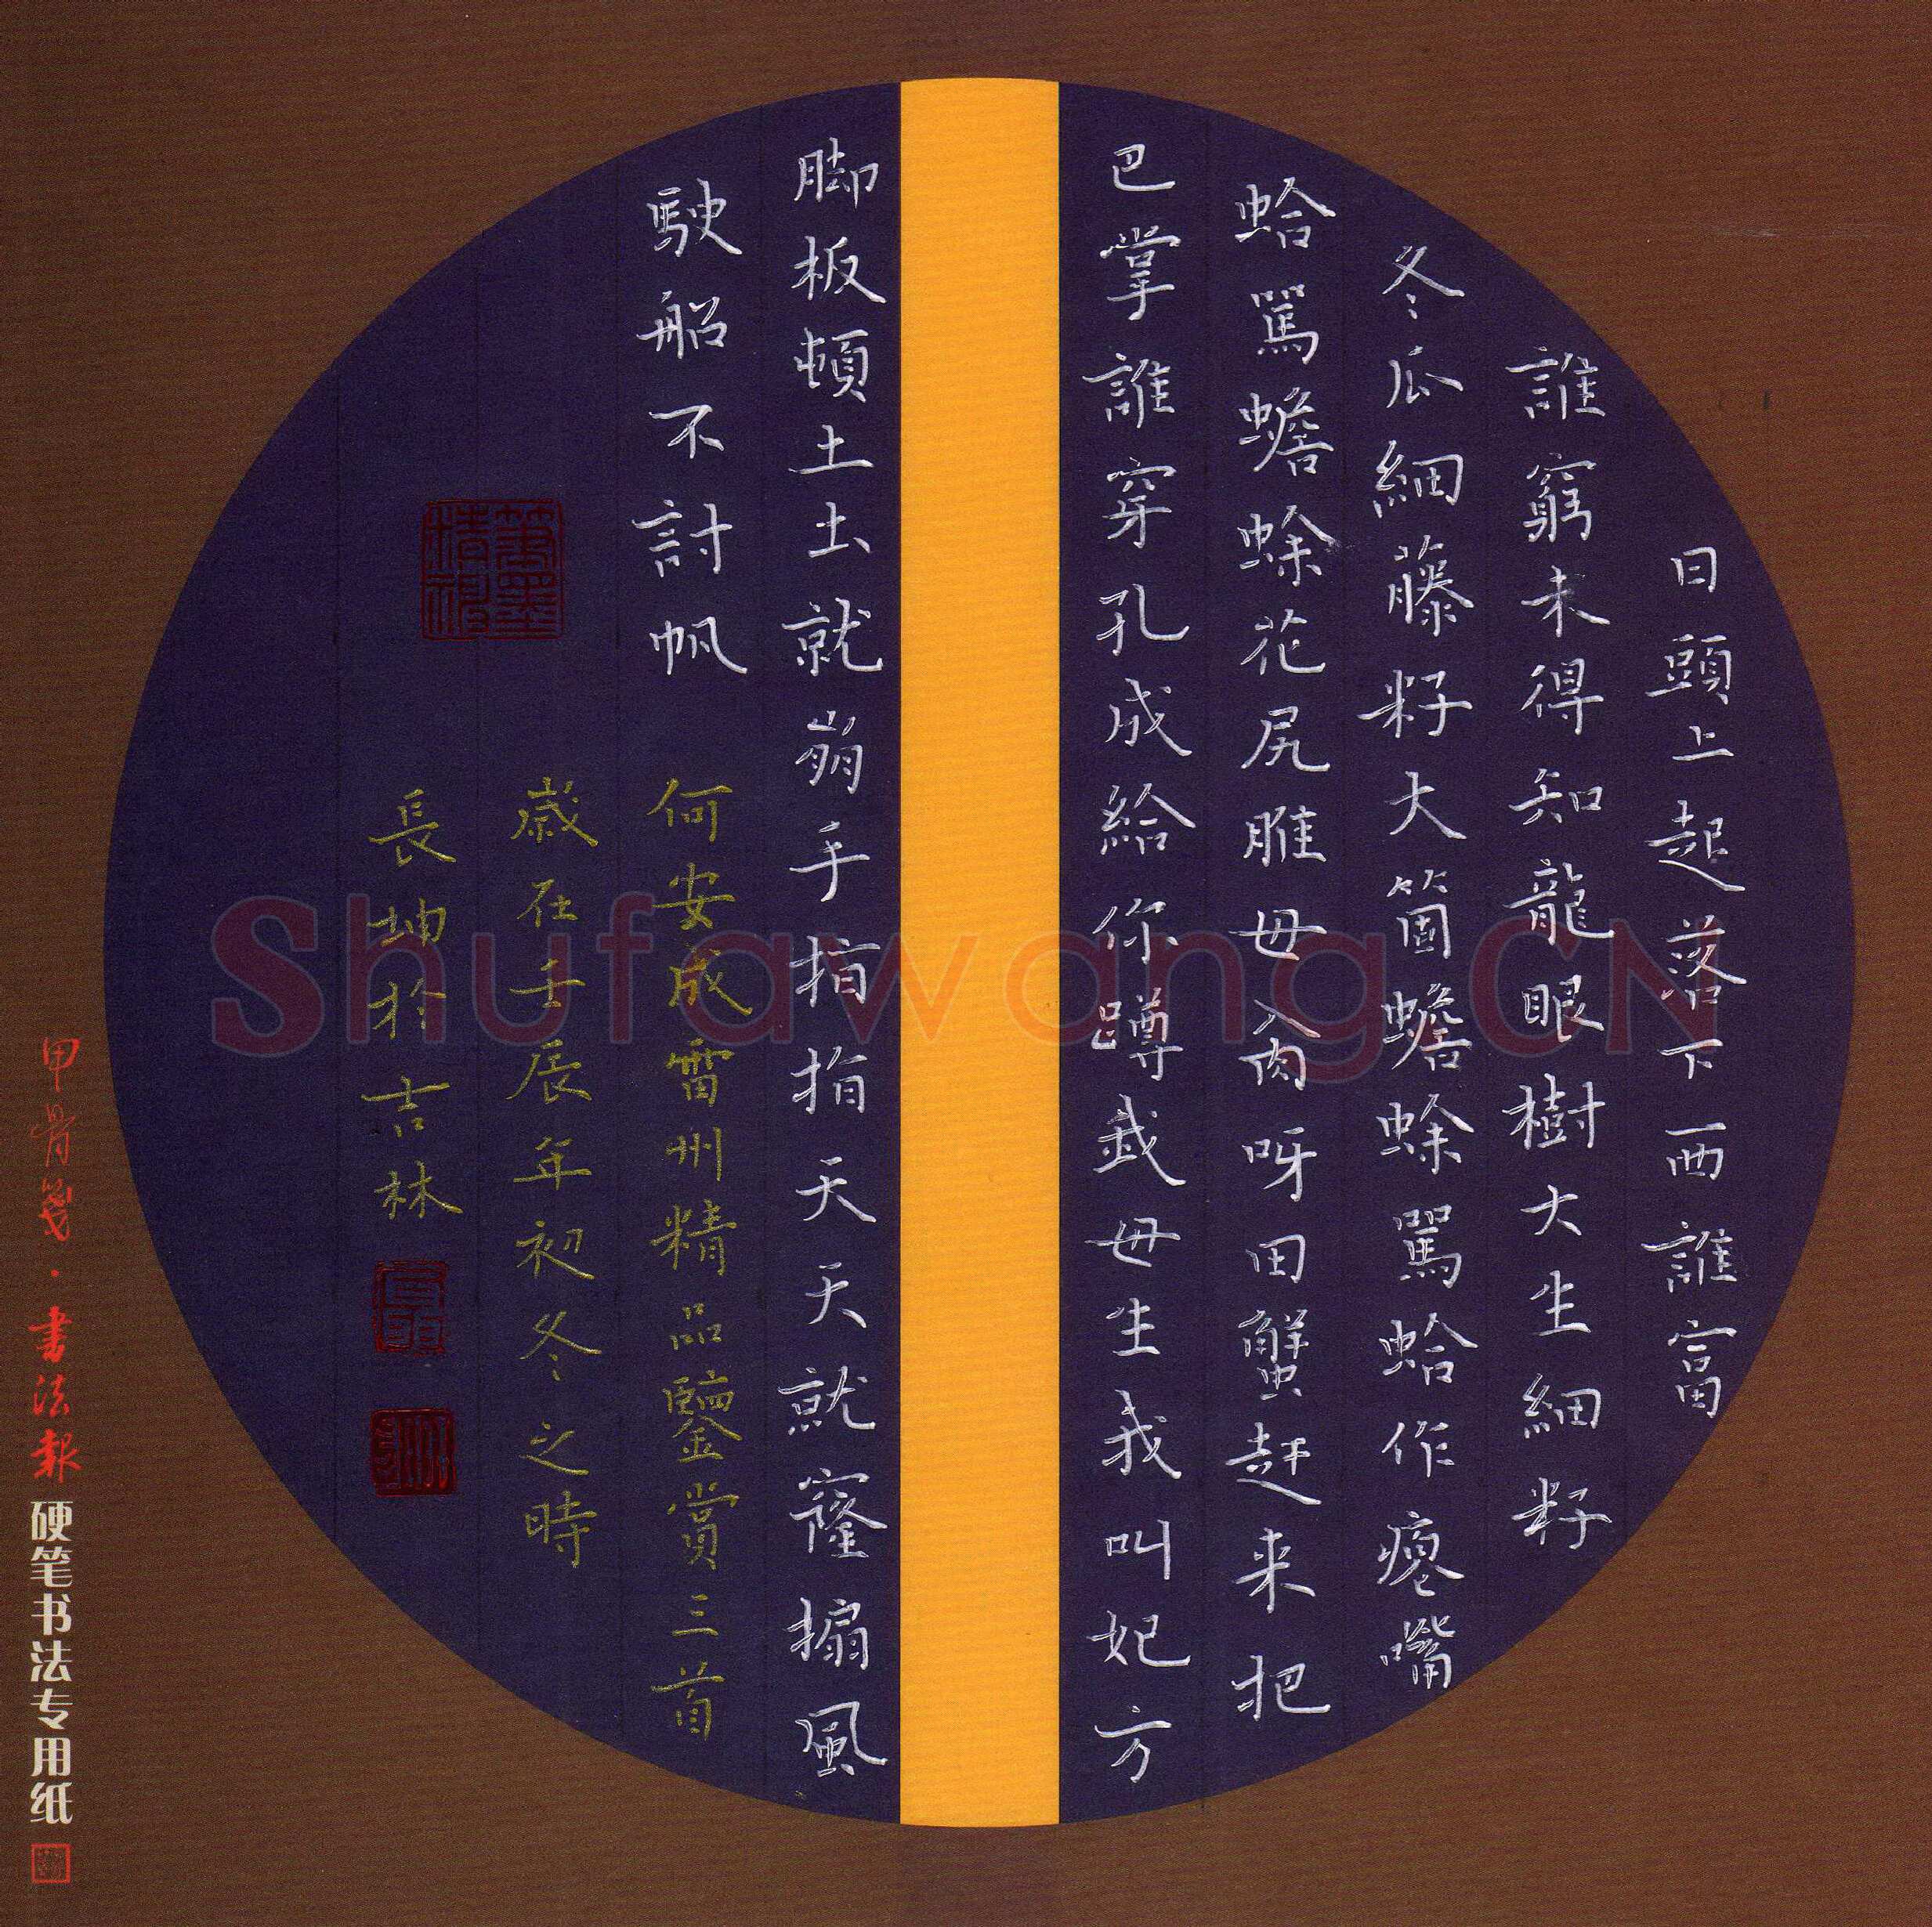 日頭上起落下西誰富
誰窮未得知龍眼樹大生細籽
冬瓜細藤籽大箇蟾蜍罵蛤作瘪嘴
蛤罵蟾蜍花尻脽毋入肉呀田蟹赶来把
巴掌誰穿孔成給你蹲我母生我叫妃方
脚板頓土土就崩手指指天天就窿搧風
駛船不討帆
何安成雷州精品鑒賞三首
歳在壬辰年初冬之時
長坤於吉林
筆墨精神
甲骨箋·書法報
硬笔书法专用纸
Shufawang.CN